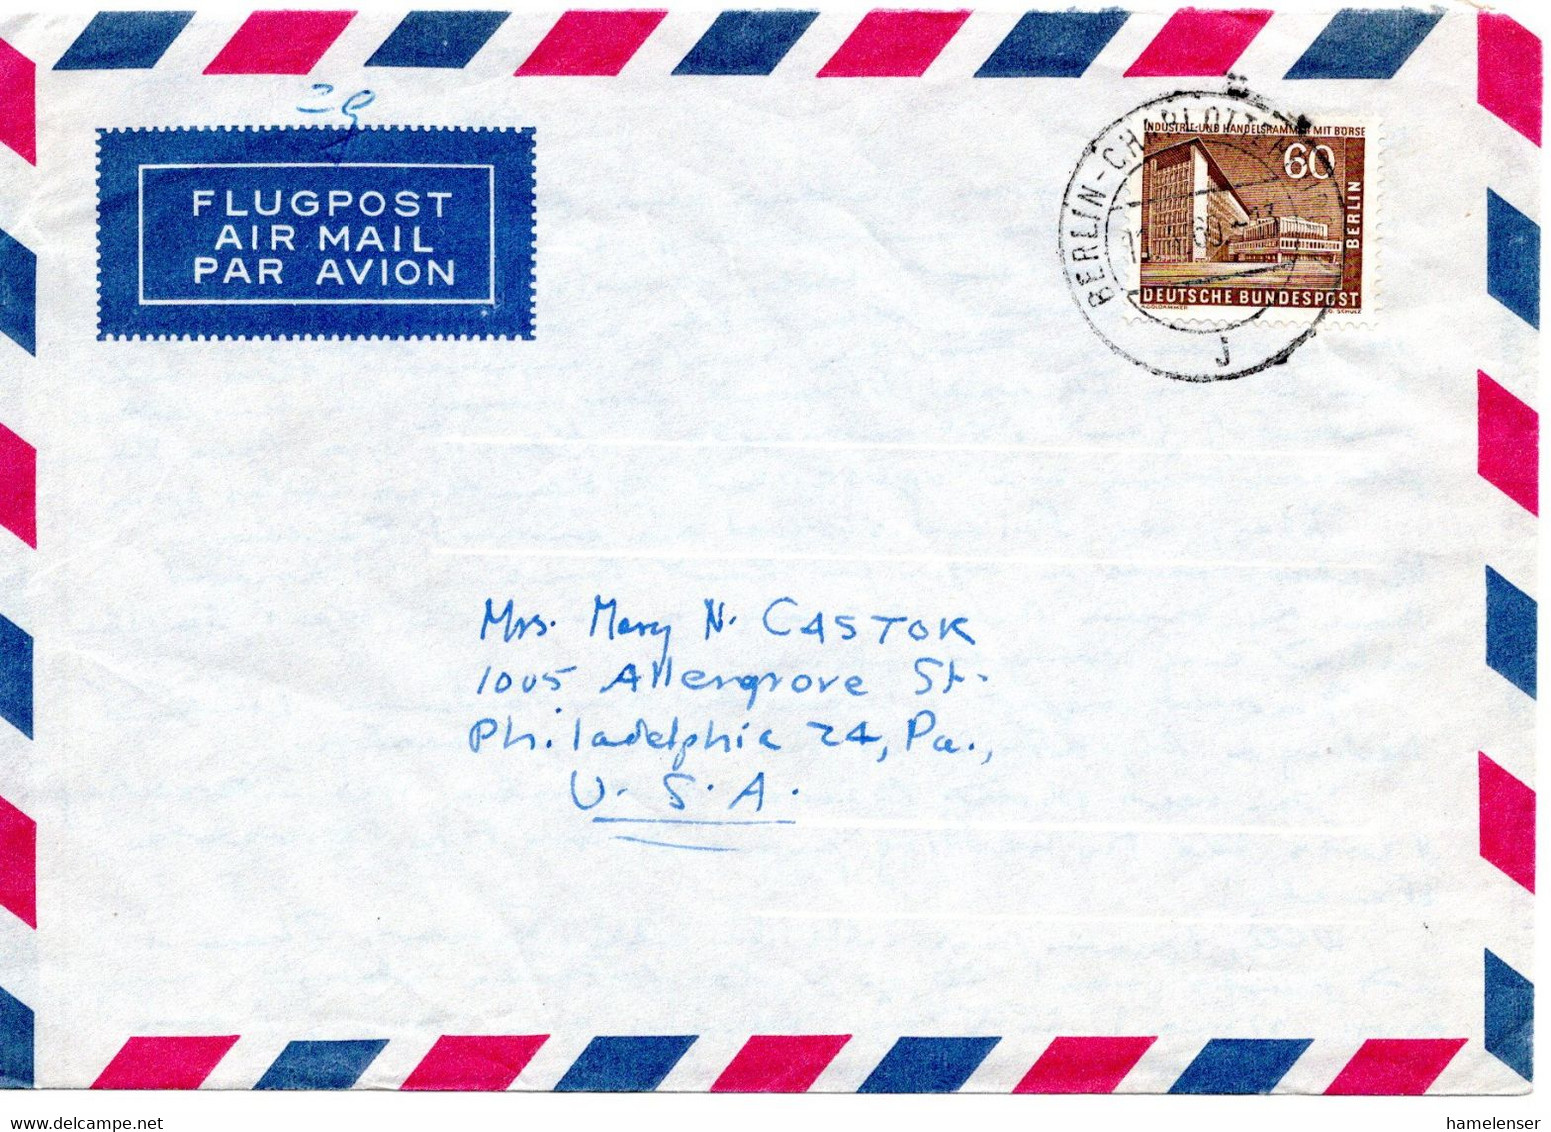 FLUGPOST
AIR MAIL
PAR AVION
BERLIN-CHARLOTTENBURG
J
INDUSTRIE-UND HANDELSKAMMER MIT BÖRSE
60
BERLIN
DEUTSCHE BUNDESPOST
G. SCHULZ
Mrs. Mary N. CASTOR
1005 Allengrove St.
Philadelphia 24, Pa.,
U.S.A.
www.delcampe.net
hamelenser